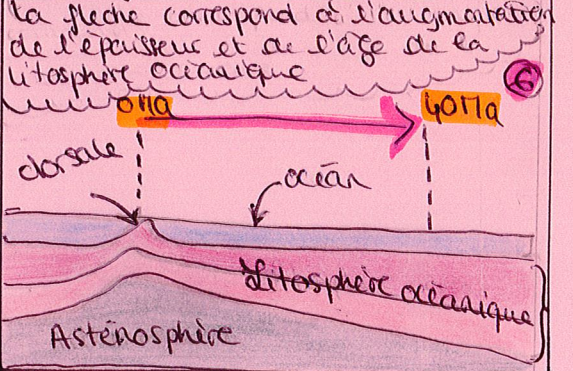 la flèche correspond à l'augmentation
de l'épaisseur et de l'âge de la
litosphère océanique
6
0Ma
40Ma
dorsale
océan
Litosphère océanique
Asténosphère